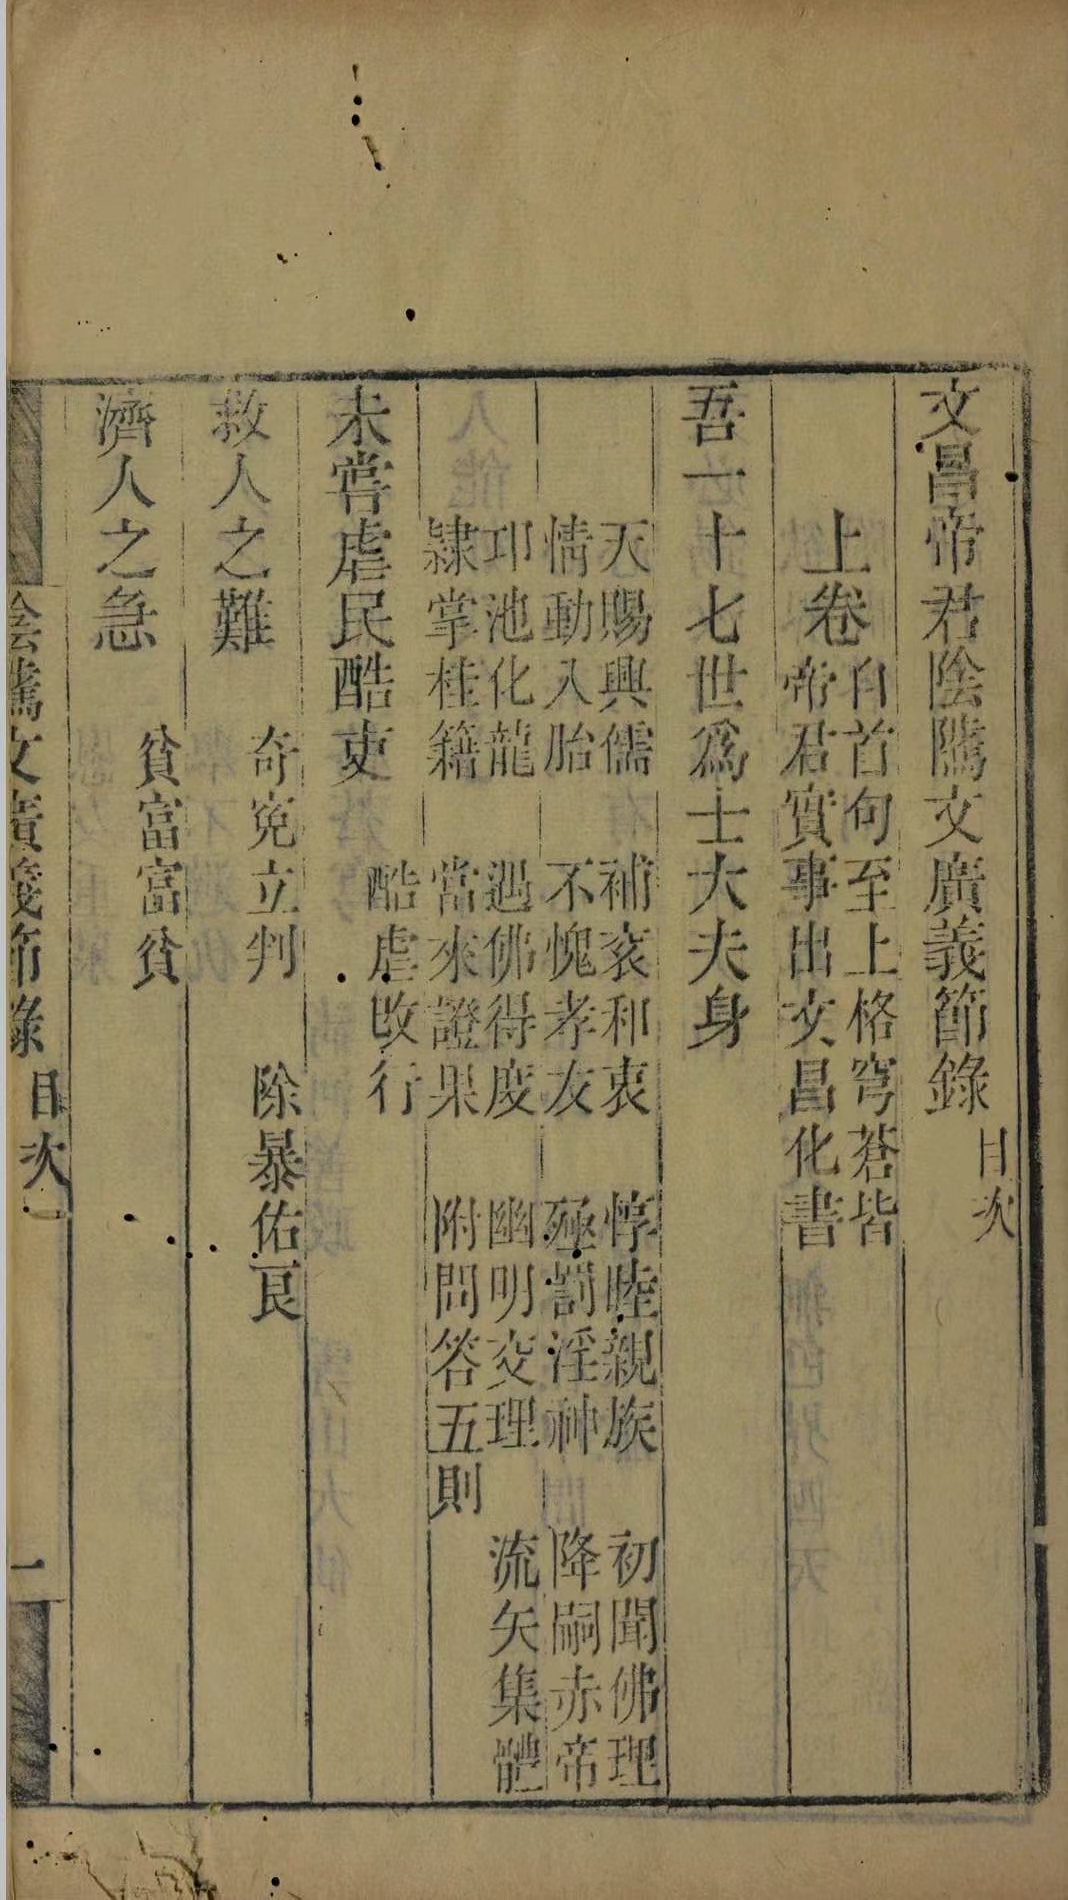 文昌帝君陰隲文廣義節錄 目次
上卷
自首句至上格穹蒼皆
帝君實事出文昌化書
吾一十七世爲士大夫身
天賜興儒 補袞和衷 惇睦親族 初聞佛理
情動入胎 不愧孝友 殛罰淫神 降嗣赤帝
邛池化龍 遇佛得度 幽明交理 流矢集體
隷掌桂籍 當來證果 附問答五則
未嘗虐民酷吏
酷虐改行
救人之難
奇寃立判 除暴佑良
濟人之急
貧富富貧
陰騭文廣義節錄 目次 一